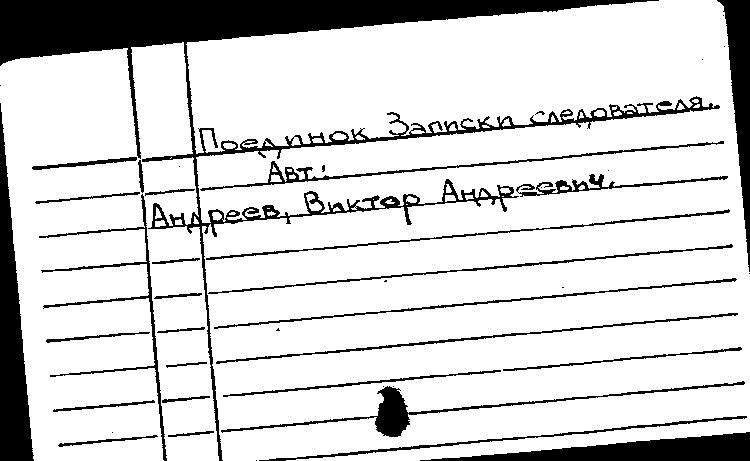 Поединок Записки следователя.
Авт.:
Андреев, Виктор Андреевич.